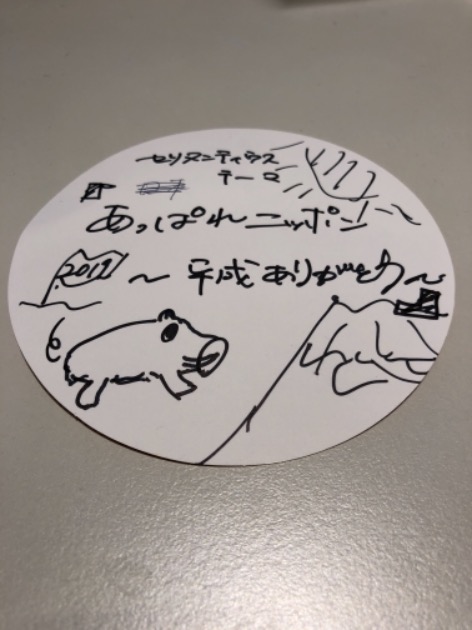 セリヌンティウス
テーマ
あっぱれニッポン!~
2019
~平成ありがとう~